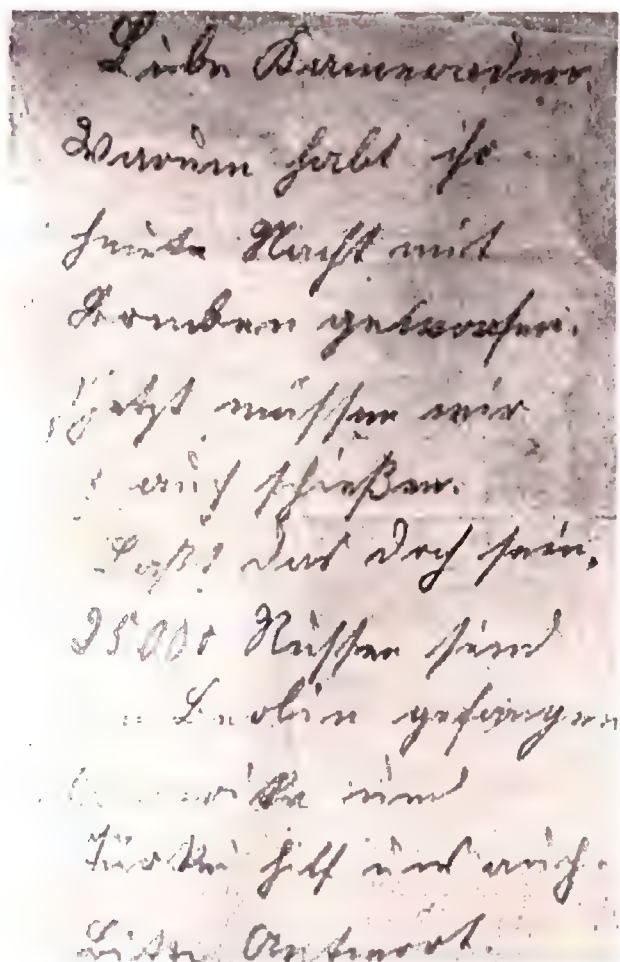 Liebe Kameraden
Warum habt ihr
heute Nacht mit
Bomben geworfen.
Jetzt müssen wir
auch schießen.
Laßt das doch sein.
25000 Russen sind
Berlin gefangen
und
Türkei hilf uns auch.
Bitte Antwort.